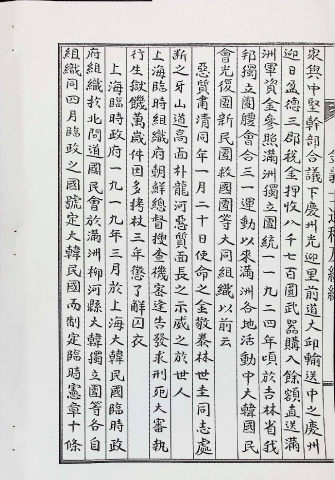 家與中堅幹部合議下慶州光迎里前道大邱輸送中之慶州
迎日盈德三郡稅金押收八千七百圓武器購入餘額直送滿
洲軍資金參照滿洲獨立團統一一九二四年頃於吉林省我
邦獨立團體會合三一運動以來滿洲各地活動中大韓國民
會光復團新民團救國團等大同組織以前云
惡質肅清同年一月二十日使命之金敬泰林世圭同志處
斷之牙山道高面朴龍河惡質面長之示威之於世人
上海臨時組織府朝鮮總督搜查機密達告發求刑死大審執
行生獄饑萬歲件因多拷杖三年懲了解囚衣
上海臨時政府一九一九年三月於上海大韓民國臨時政
府組織於北間道國民會於滿洲柳河縣大韓獨立團等各自
組織同四月臨政之國號定大韓民國而制定臨時憲章十條